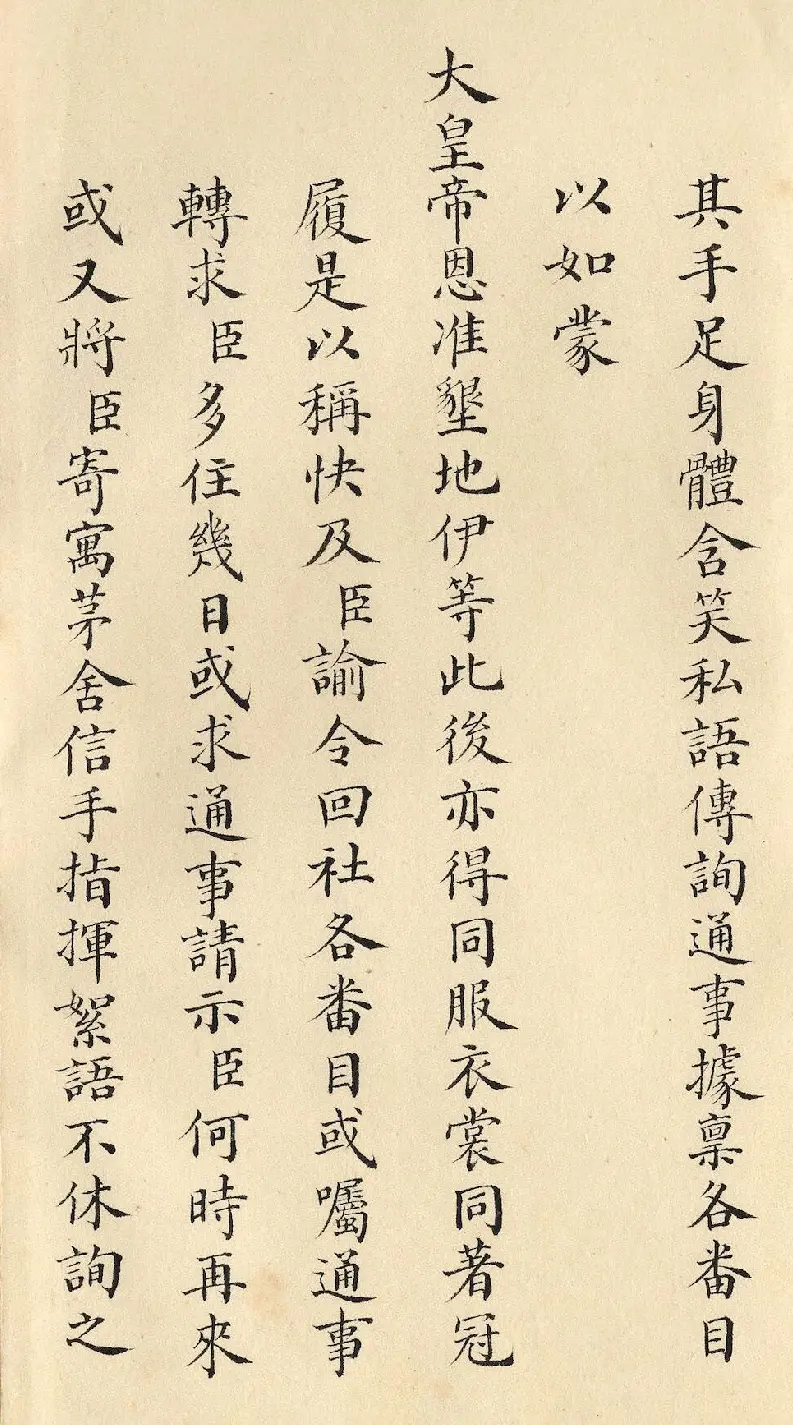 其手足身體含笑私語傳詢通事據稟各番目
以如蒙
大皇帝恩准墾地伊等此後亦得同服衣裳同著冠
履是以稱快及臣諭令回社各番目或囑通事
轉求臣多住幾日或求通事請示臣何時再來
或又將臣寄寓茅舍信手指揮絮語不休詢之